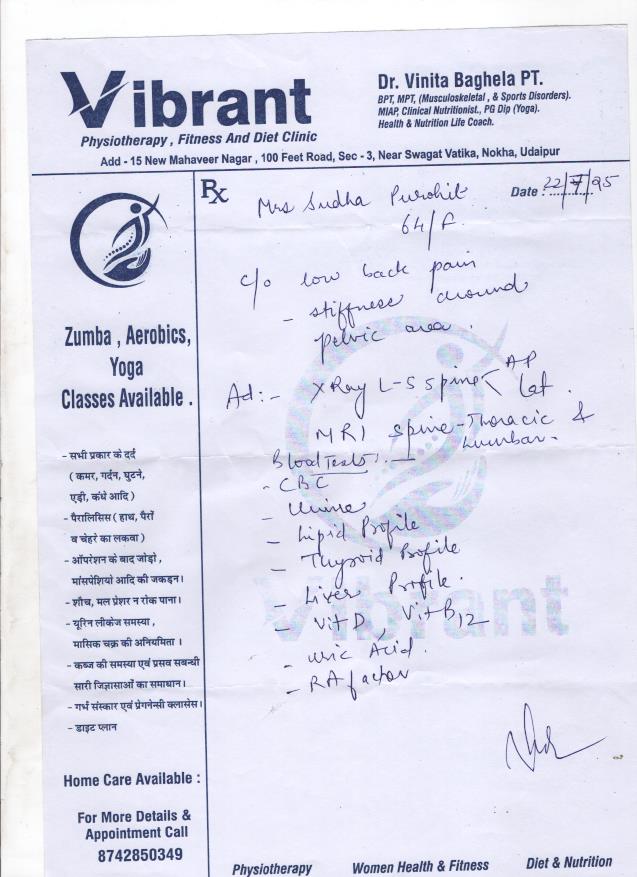 Vibrant
Physiotherapy , Fitness And Diet Clinic
Dr. Vinita Baghela PT.
BPT, MPT, (Musculoskeletal , & Sports Disorders).
MIAP, Clinical Nutritionist., PG Dip (Yoga).
Health & Nutrition Life Coach.
Add - 15 New Mahaveer Nagar , 100 Feet Road, Sec - 3, Near Swagat Vatika, Nokha, Udaipur
Rx
Mrs Sudha Purohit
64/F
Date : 22/7/25
c/o low back pain
- stiffness around
pelvic area .
Ad:- X Ray L-S spine < AP
Lat .
MRI spine - Thoracic &
Lumbar -
Blood Tests :-
- CBC
- Urine
- Lipid Profile
- Thyroid Profile
- Liver Profile .
- Vit D , Vit B12
- Uric Acid .
- RA factor
Zumba , Aerobics,
Yoga
Classes Available .
- सभी प्रकार के दर्द
( कमर, गर्दन, घुटने,
एड़ी, कंधे आदि )
- पैरालिसिस ( हाथ, पैरों
व चेहरे का लकवा )
- ऑपरेशन के बाद जोड़ो ,
मांसपेशियो आदि की जकड़न।
- शौच, मल प्रेशर न रोक पाना।
- यूरिन लीकेज समस्या ,
मासिक चक्र की अनियमिता ।
- कब्ज की समस्या एवं प्रसव सबन्धी
सारी जिज्ञासाओं का समाधान।
- गर्भ संस्कार एवं प्रेगनेन्सी क्लासेस।
- डाइट प्लान
Home Care Available :
For More Details &
Appointment Call
8742850349
Vibrant
Physiotherapy Women Health & Fitness Diet & Nutrition